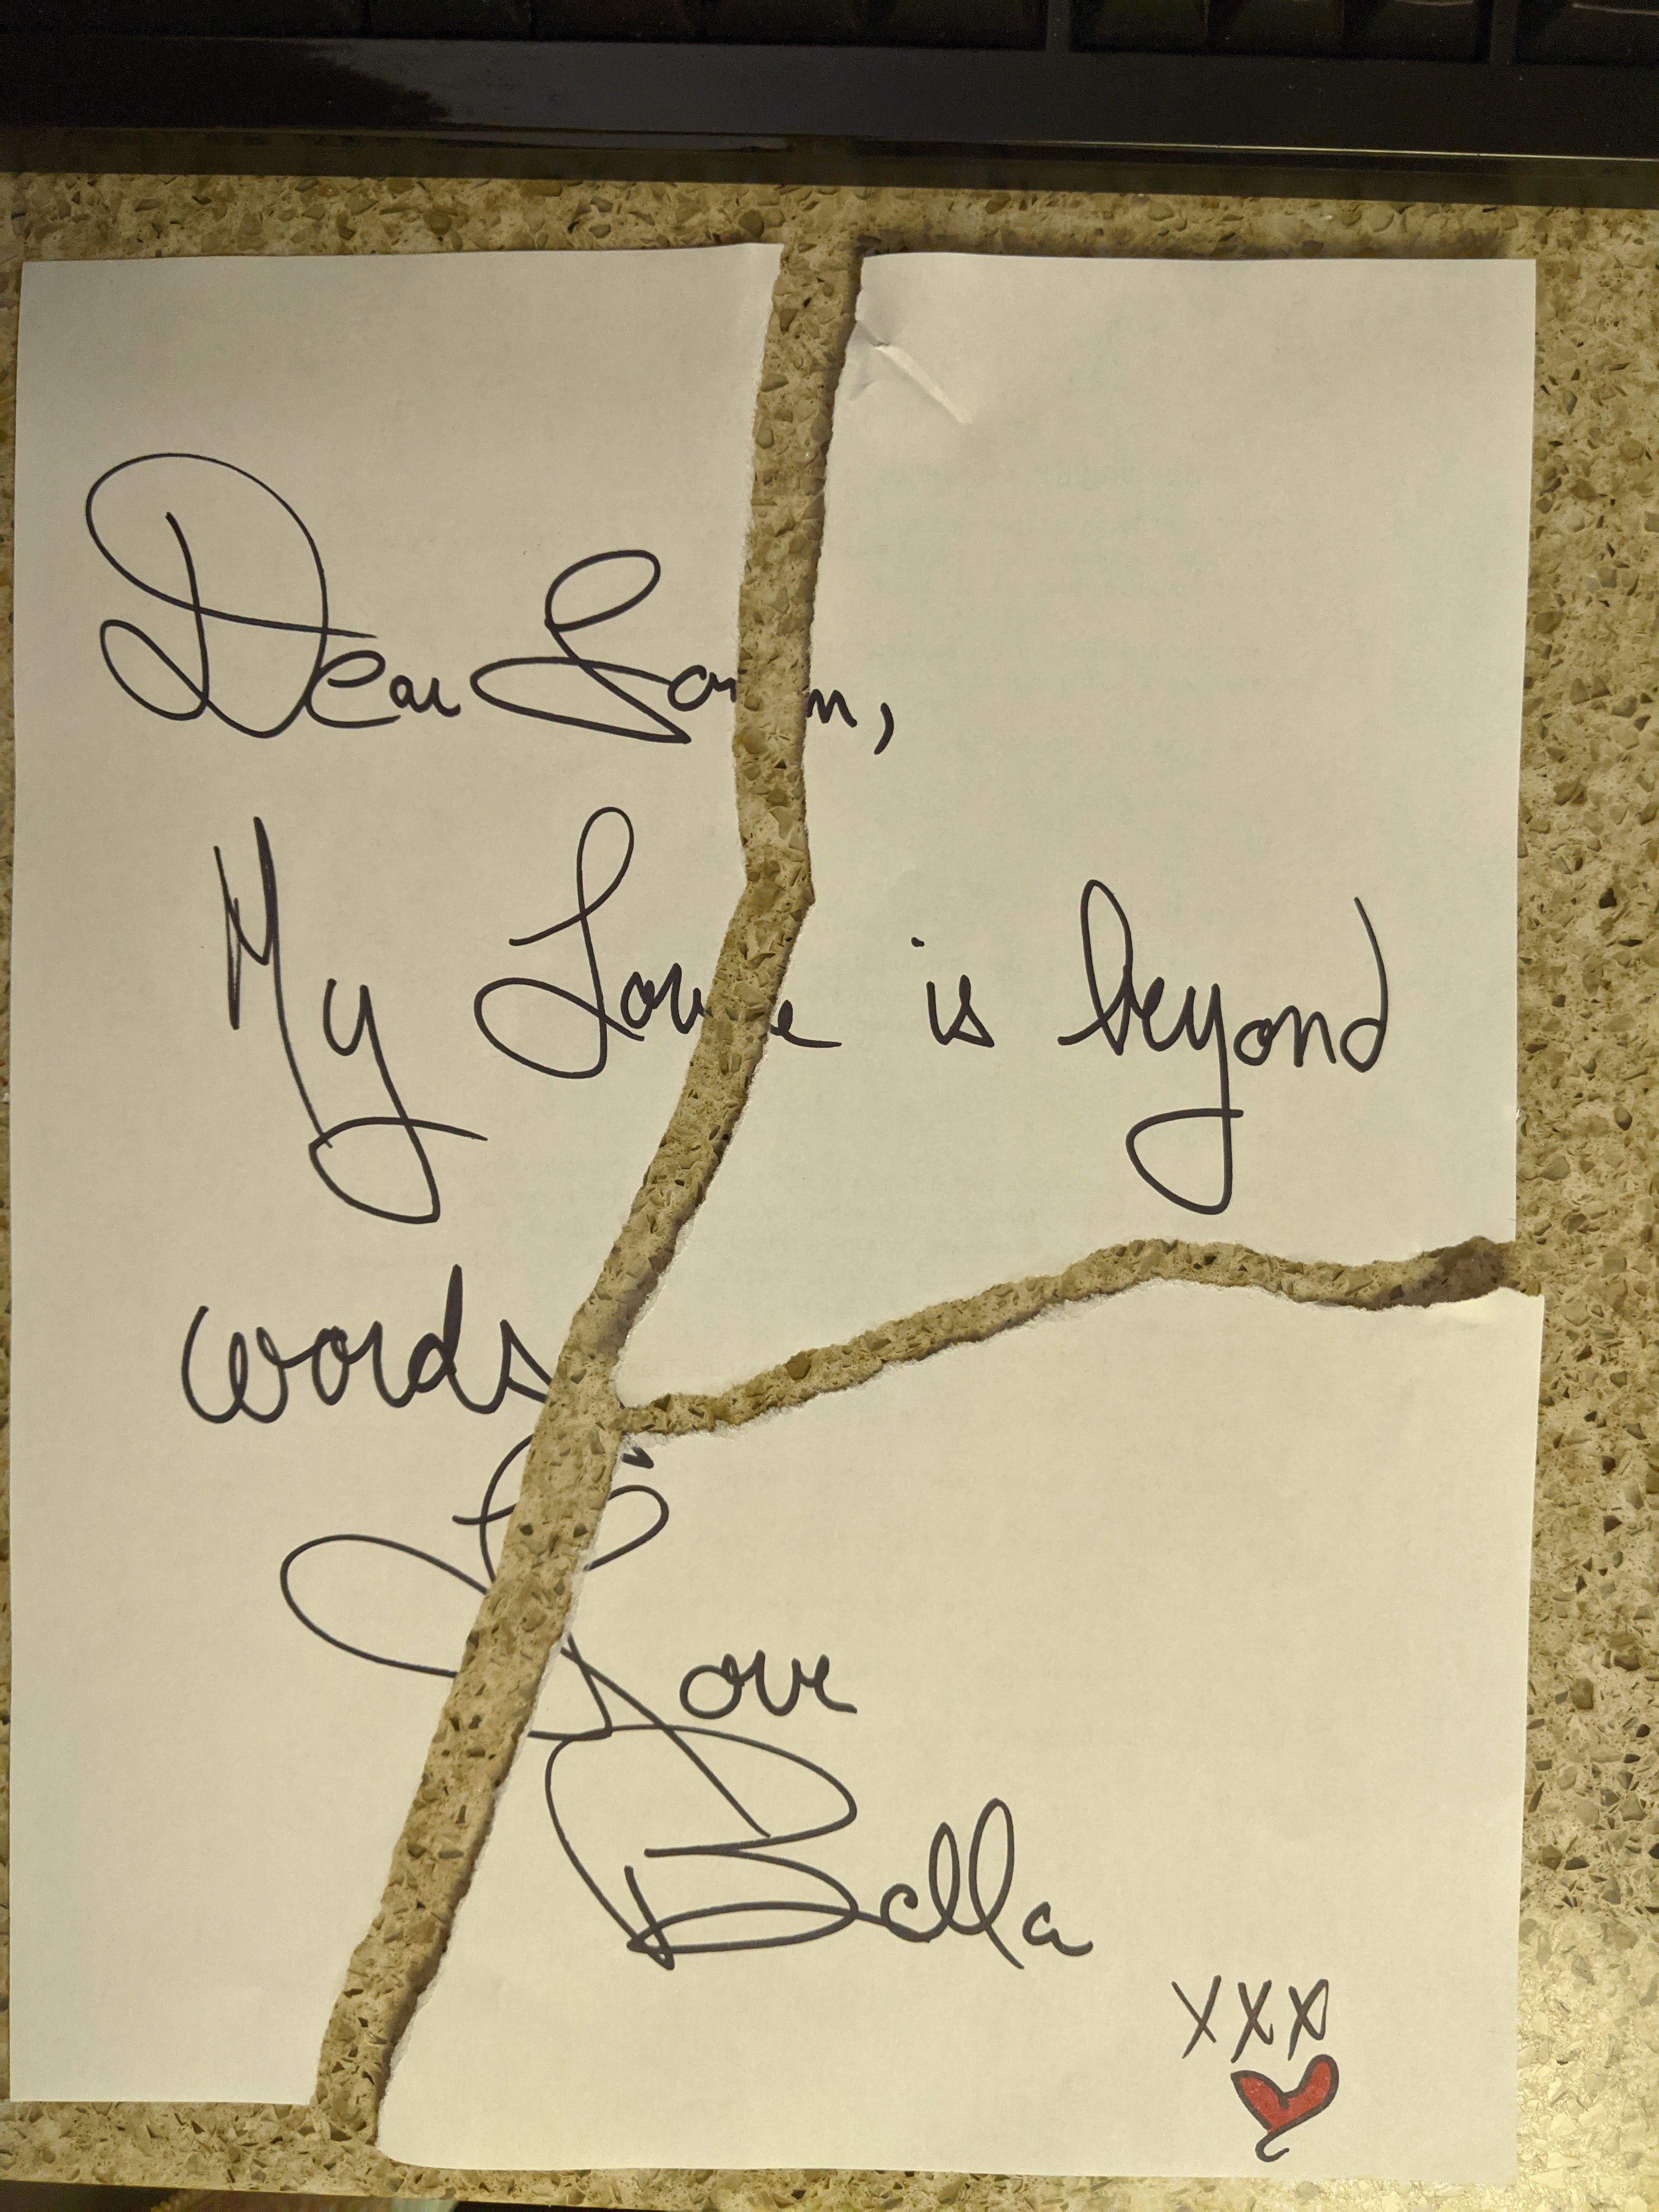 Dear Sam,
My Love is beyond
words
Love
Bella
xxx